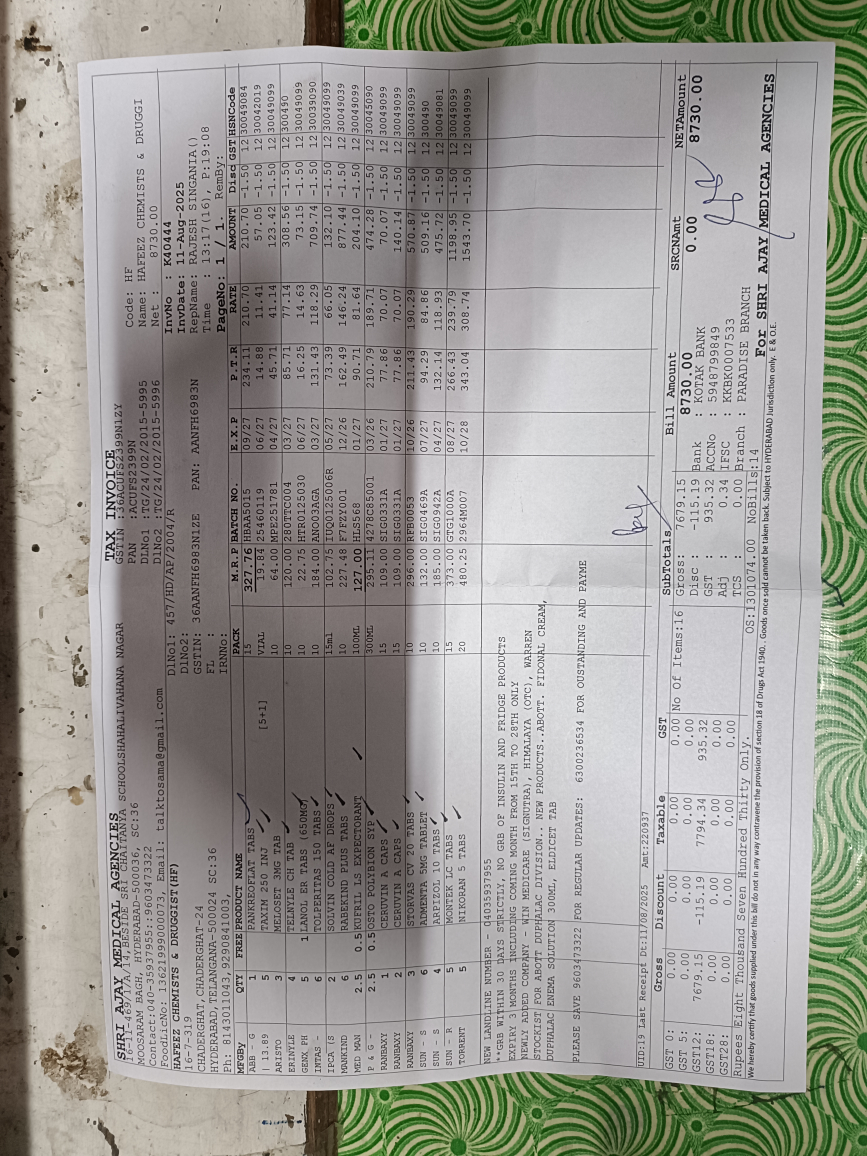 SHRI AJAY MEDICAL AGENCIES
16-11-469/1/A,14,BESIDE SRI CHAITANYA SCHOOLSHAHALIVAHANA NAGAR
MOOSARAM BAGH, HYDERABAD-500036, SC:36
Contact:040-35937955::9603473322
FoodLicNo: 13621999000073, Email: talktosama@gmail.com
TAX INVOICE
GSTIN :36ACUFS2399N1ZY
PAN :ACUFS2399N
DlNo1 :TG/24/02/2015-5995
DlNo2 :TG/24/02/2015-5996
Code: HF
Name: HAFEEZ CHEMISTS & DRUGGI
Net : 8730.00
HAFEEZ CHEMISTS & DRUGGIST(HF)
16-7-319
CHADERGHAT,CHADERGHAT-24
HYDERABAD,TELANGANA-500024 SC:36
Ph: 8143011043,9290841003,
DlNo1: 457/HD/AP/2004/R
DlNo2:
GSTIN: 36AANFH6983N1ZE PAN: AANFH6983N
FL :
IRNNo:
InvNo : K40444
InvDate: 11-Aug-2025
RepName: RAJESH SINGANIA()
Time : 13:17(16), P:19:08
PageNo: 1 / 1. RemBy:
MFGBy QTY FREE PRODUCT NAME PACK M.R.P BATCH NO. E.X.P P.T.R RATE AMOUNT Disc GST HSNCode
ABB - G 1 PANKREOFLAT TABS 15 327.76 HBAA5015 09/27 234.11 210.70 210.70 -1.50 12 30049084
| 13.89 5 TAXIM 250 INJ [5+1] VIAL 19.84 25460119 06/27 14.88 11.41 57.05 -1.50 12 30042019
ARISTO 3 MELOSET 3MG TAB 10 64.00 MPE251781 04/27 45.71 41.14 123.42 -1.50 12 30049099
ERINYLE 4 TELNYLE CH TAB 10 120.00 280TTC004 03/27 85.71 77.14 308.56 -1.50 12 300490
GENX PH 5 1 LANOL ER TABS (650MG) 10 22.75 HTR0125030 06/27 16.25 14.63 73.15 -1.50 12 30049099
INTAS - 6 TOLPERITAS 150 TABS 10 184.00 ANO03AGA 03/27 131.43 118.29 709.74 -1.50 12 30039090
IPCA (S 2 SOLVIN COLD AF DROPS 15ml 102.75 IUQ0125006R 05/27 73.39 66.05 132.10 -1.50 12 30049099
MANKIND 6 RABEKIND PLUS TABS 10 227.48 F7FZY001 12/26 162.49 146.24 877.44 -1.50 12 30049039
MED MAN 2.5 0.5 KUFRIL LS EXPECTORANT 100ML 127.00 HLS568 01/27 90.71 81.64 204.10 -1.50 12 30049099
P & G - 2.5 0.5 OSTO POLYBION SYP 300ML 295.11 4278C85001 03/26 210.79 189.71 474.28 -1.50 12 30045090
RANBAXY 1 CERUVIN A CAPS 15 109.00 SIG0331A 01/27 77.86 70.07 70.07 -1.50 12 30049099
RANBAXY 2 CERUVIN A CAPS 15 109.00 SIG0331A 01/27 77.86 70.07 140.14 -1.50 12 30049099
RANBAXY 3 STORVAS CV 20 TABS 10 296.00 RFB0053 10/26 211.43 190.29 570.87 -1.50 12 30049099
SUN - S 6 ADMENTA 5MG TABLET 10 132.00 SIG0469A 07/27 94.29 84.86 509.16 -1.50 12 300490
SUN - S 4 ARPIZOL 10 TABS 10 185.00 SIG0942A 04/27 132.14 118.93 475.72 -1.50 12 30049081
SUN - R 5 MONTEK LC TABS 15 373.00 GTG1000A 08/27 266.43 239.79 1198.95 -1.50 12 30049099
TORRENT 5 NIKORAN 5 TABS 20 480.25 2964M007 10/28 343.04 308.74 1543.70 -1.50 12 30049099
NEW LANDLINE NUMBER - 04035937955
**GRB WITHIN 30 DAYS STRICTLY, NO GRB OF INSULIN AND FRIDGE PRODUCTS
EXPIRY 3 MONTHS INCLUDING COMING MONTH FROM 15TH TO 28TH ONLY
NEWLY ADDED COMPANY - WIN MEDICARE (SIGNUTRA), HIMALAYA (OTC), WARREN
STOCKIST FOR ABOTT DUPHALAC DIVISION.. NEW PRODUCTS..ABOTT. FIDONAL CREAM,
DUPHALAC ENEMA SOLUTION 300ML, ELDICET TAB
PLEASE SAVE 9603473322 FOR REGULAR UPDATES: 6300236534 FOR OUSTANDING AND PAYME
UID:19 Last Receipt Dt:11/08/2025 Amt:220937
Gross Discount Taxable GST
GST 0: 0.00 0.00 0.00 0.00
GST 5: 0.00 0.00 0.00 0.00
GST12: 7679.15 -115.19 7794.34 935.32
GST18: 0.00 0.00 0.00 0.00
GST28: 0.00 0.00 0.00 0.00
No Of Items:16
SubTotals
Gross: 7679.15
Disc : -115.19
GST : 935.32
Adj : 0.34
TCS : 0.00
Bill Amount SRCNAmt NETAmount
8730.00 0.00 8730.00
Bank : KOTAK BANK
ACCNo : 5948799849
IFSC : KKBK0007533
Branch : PARADISE BRANCH
Rupees Eight Thousand Seven Hundred Thirty Only. OS:1301074.00 NoBills:14
For SHRI AJAY MEDICAL AGENCIES
We hereby certify that goods supplied under this bill do not in any way contravene the provision of section 18 of Drugs Act 1940. . Goods once sold cannot be taken back. Subject to HYDERABAD Jurisdiction only. E & O.E.